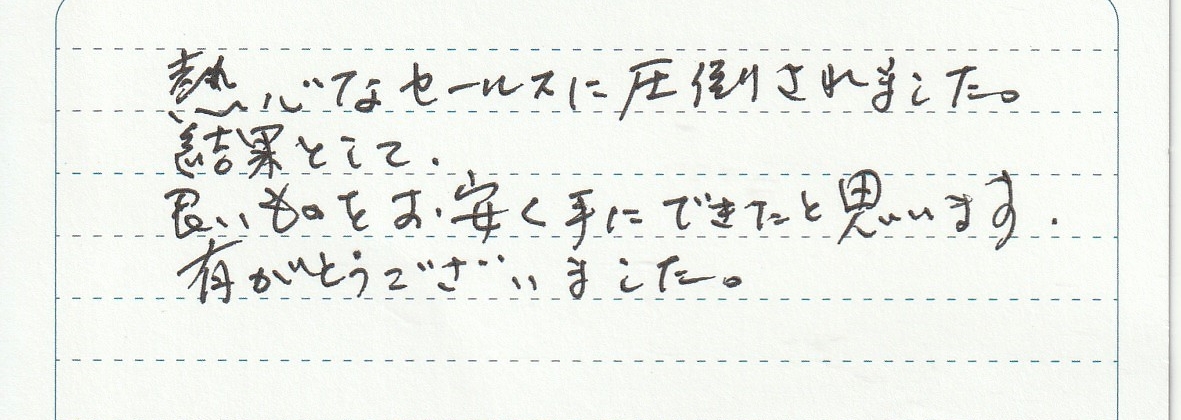 熱心なセールスに圧倒されました。
結果として、
良いものをお安く手にできたと思います.
有がとうございました。